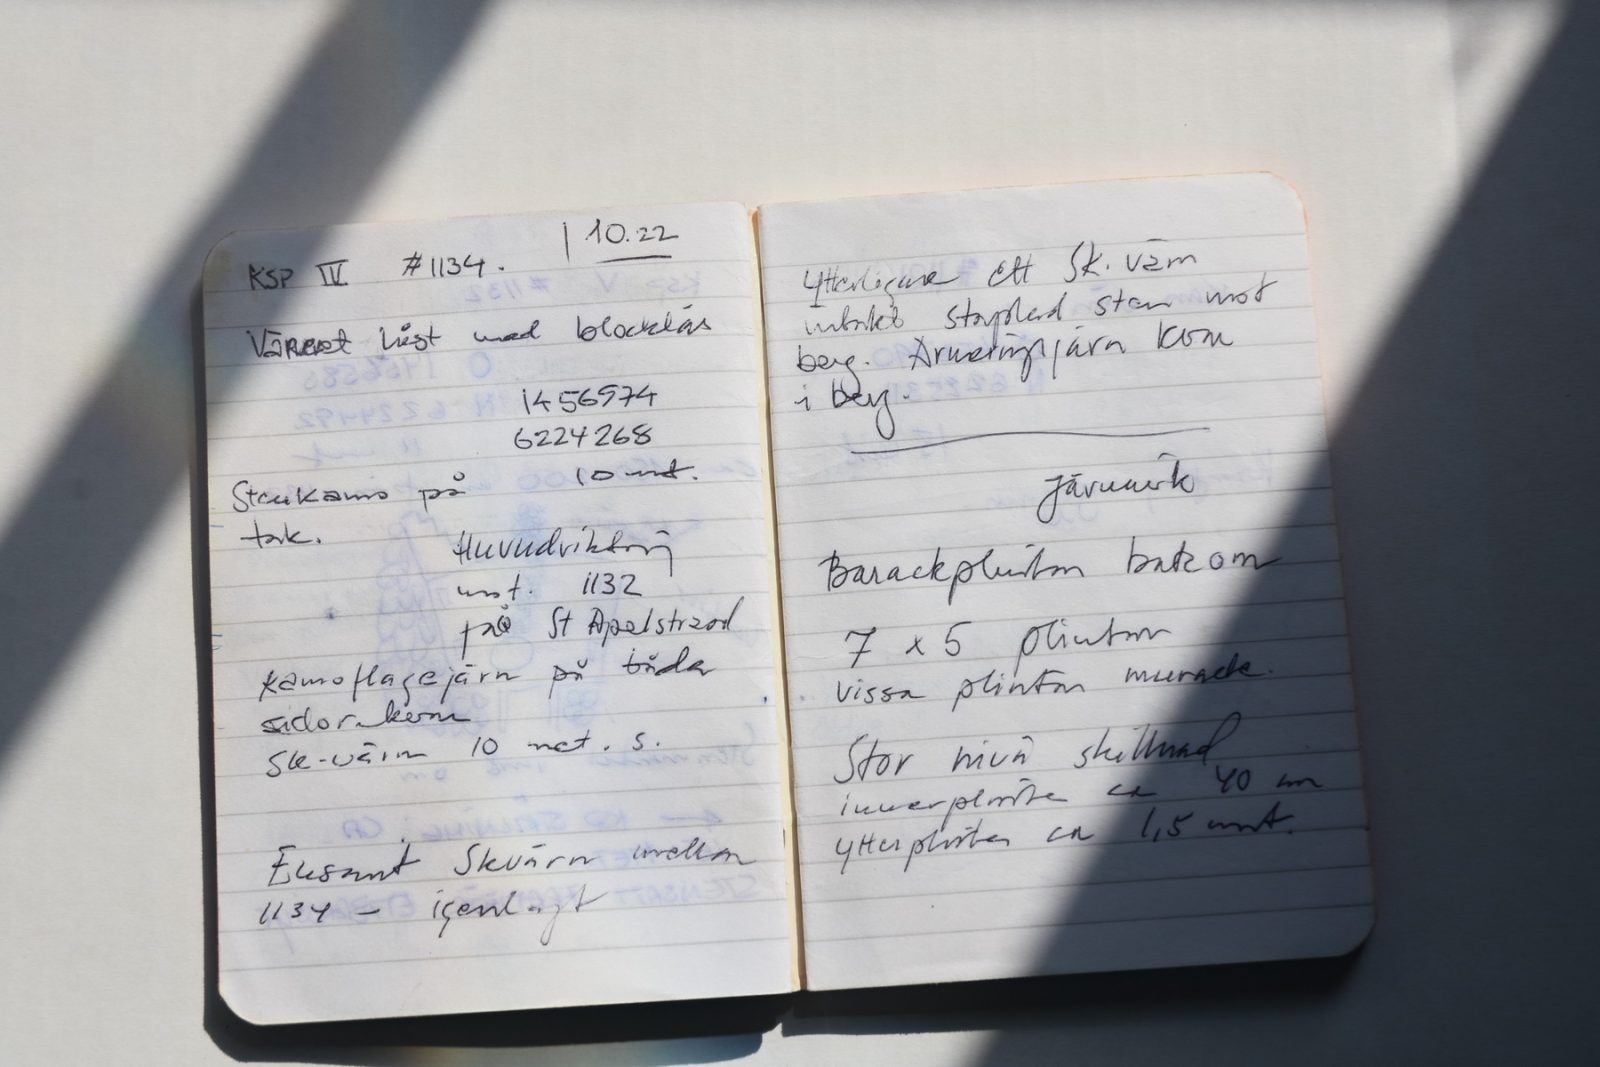 10.22
KSP IV #1134.
Värnet låst med blocklås
1456974
6224268
10 mt.
Stenkamo på
tak.
Huvudriktning
mot. 1132
på St Apelstrand
kamoflagejärn på båda
sidor
Sk-värn 10 met. S.
Ensamt Skvärn mellan
1134 – igenlagt
Ytterligare ett Sk. värn
staplad sten mot
berg. Armeringsjärn
i berg.
Järnavik
Barackplintar bakom
7 x 5 plintar
vissa plintar murade.
Stor nivå skillnad
innerplintar ca 40 cm
ytterplintar ca 1,5 mt.